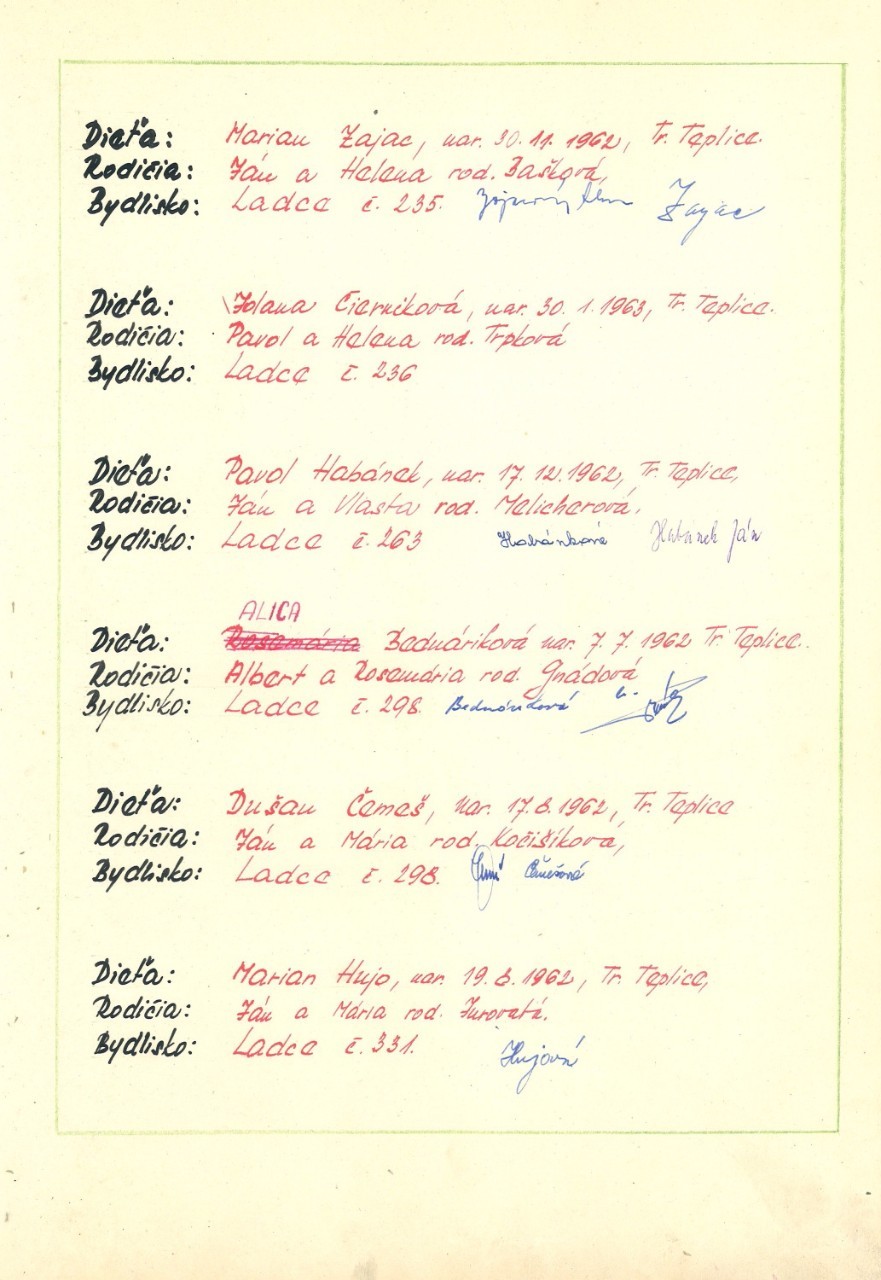 Dieťa: Marian Zajac, nar. 30. 11. 1962, Tr. Teplice.
Rodičia: Ján a Helena rod. Bašková,
Bydlisko: Ladce č. 235. Zajac
Dieťa: Jolana Cierniková, nar. 30. 1. 1963, Tr. Teplice.
Rodičia: Pavol a Helena rod. Trpková
Bydlisko: Ladce č. 236
Dieťa: Pavol Habánek, nar. 17. 12. 1962, Tr. Teplice,
Rodičia: Ján a Vlasta rod. Melicherová,
Bydlisko: Ladce č. 263 Habánková Habánek Ján
ALICA
Dieťa: Rosemária Bednáriková nar. 7. 7. 1962 Tr. Teplice.
Rodičia: Albert a Rosemária rod. Gnádová
Bydlisko: Ladce č. 298. Bednáriková
Dieťa: Dušan Čemeš, nar. 17. 8. 1962, Tr. Teplice
Rodičia: Ján a Mária rod. Kočišíková,
Bydlisko: Ladce č. 298. Čemešová
Dieťa: Marian Hujo, nar. 19. 8. 1962, Tr. Teplice,
Rodičia: Ján a Mária rod. Jurovatá.
Bydlisko: Ladce č. 331. Hujová